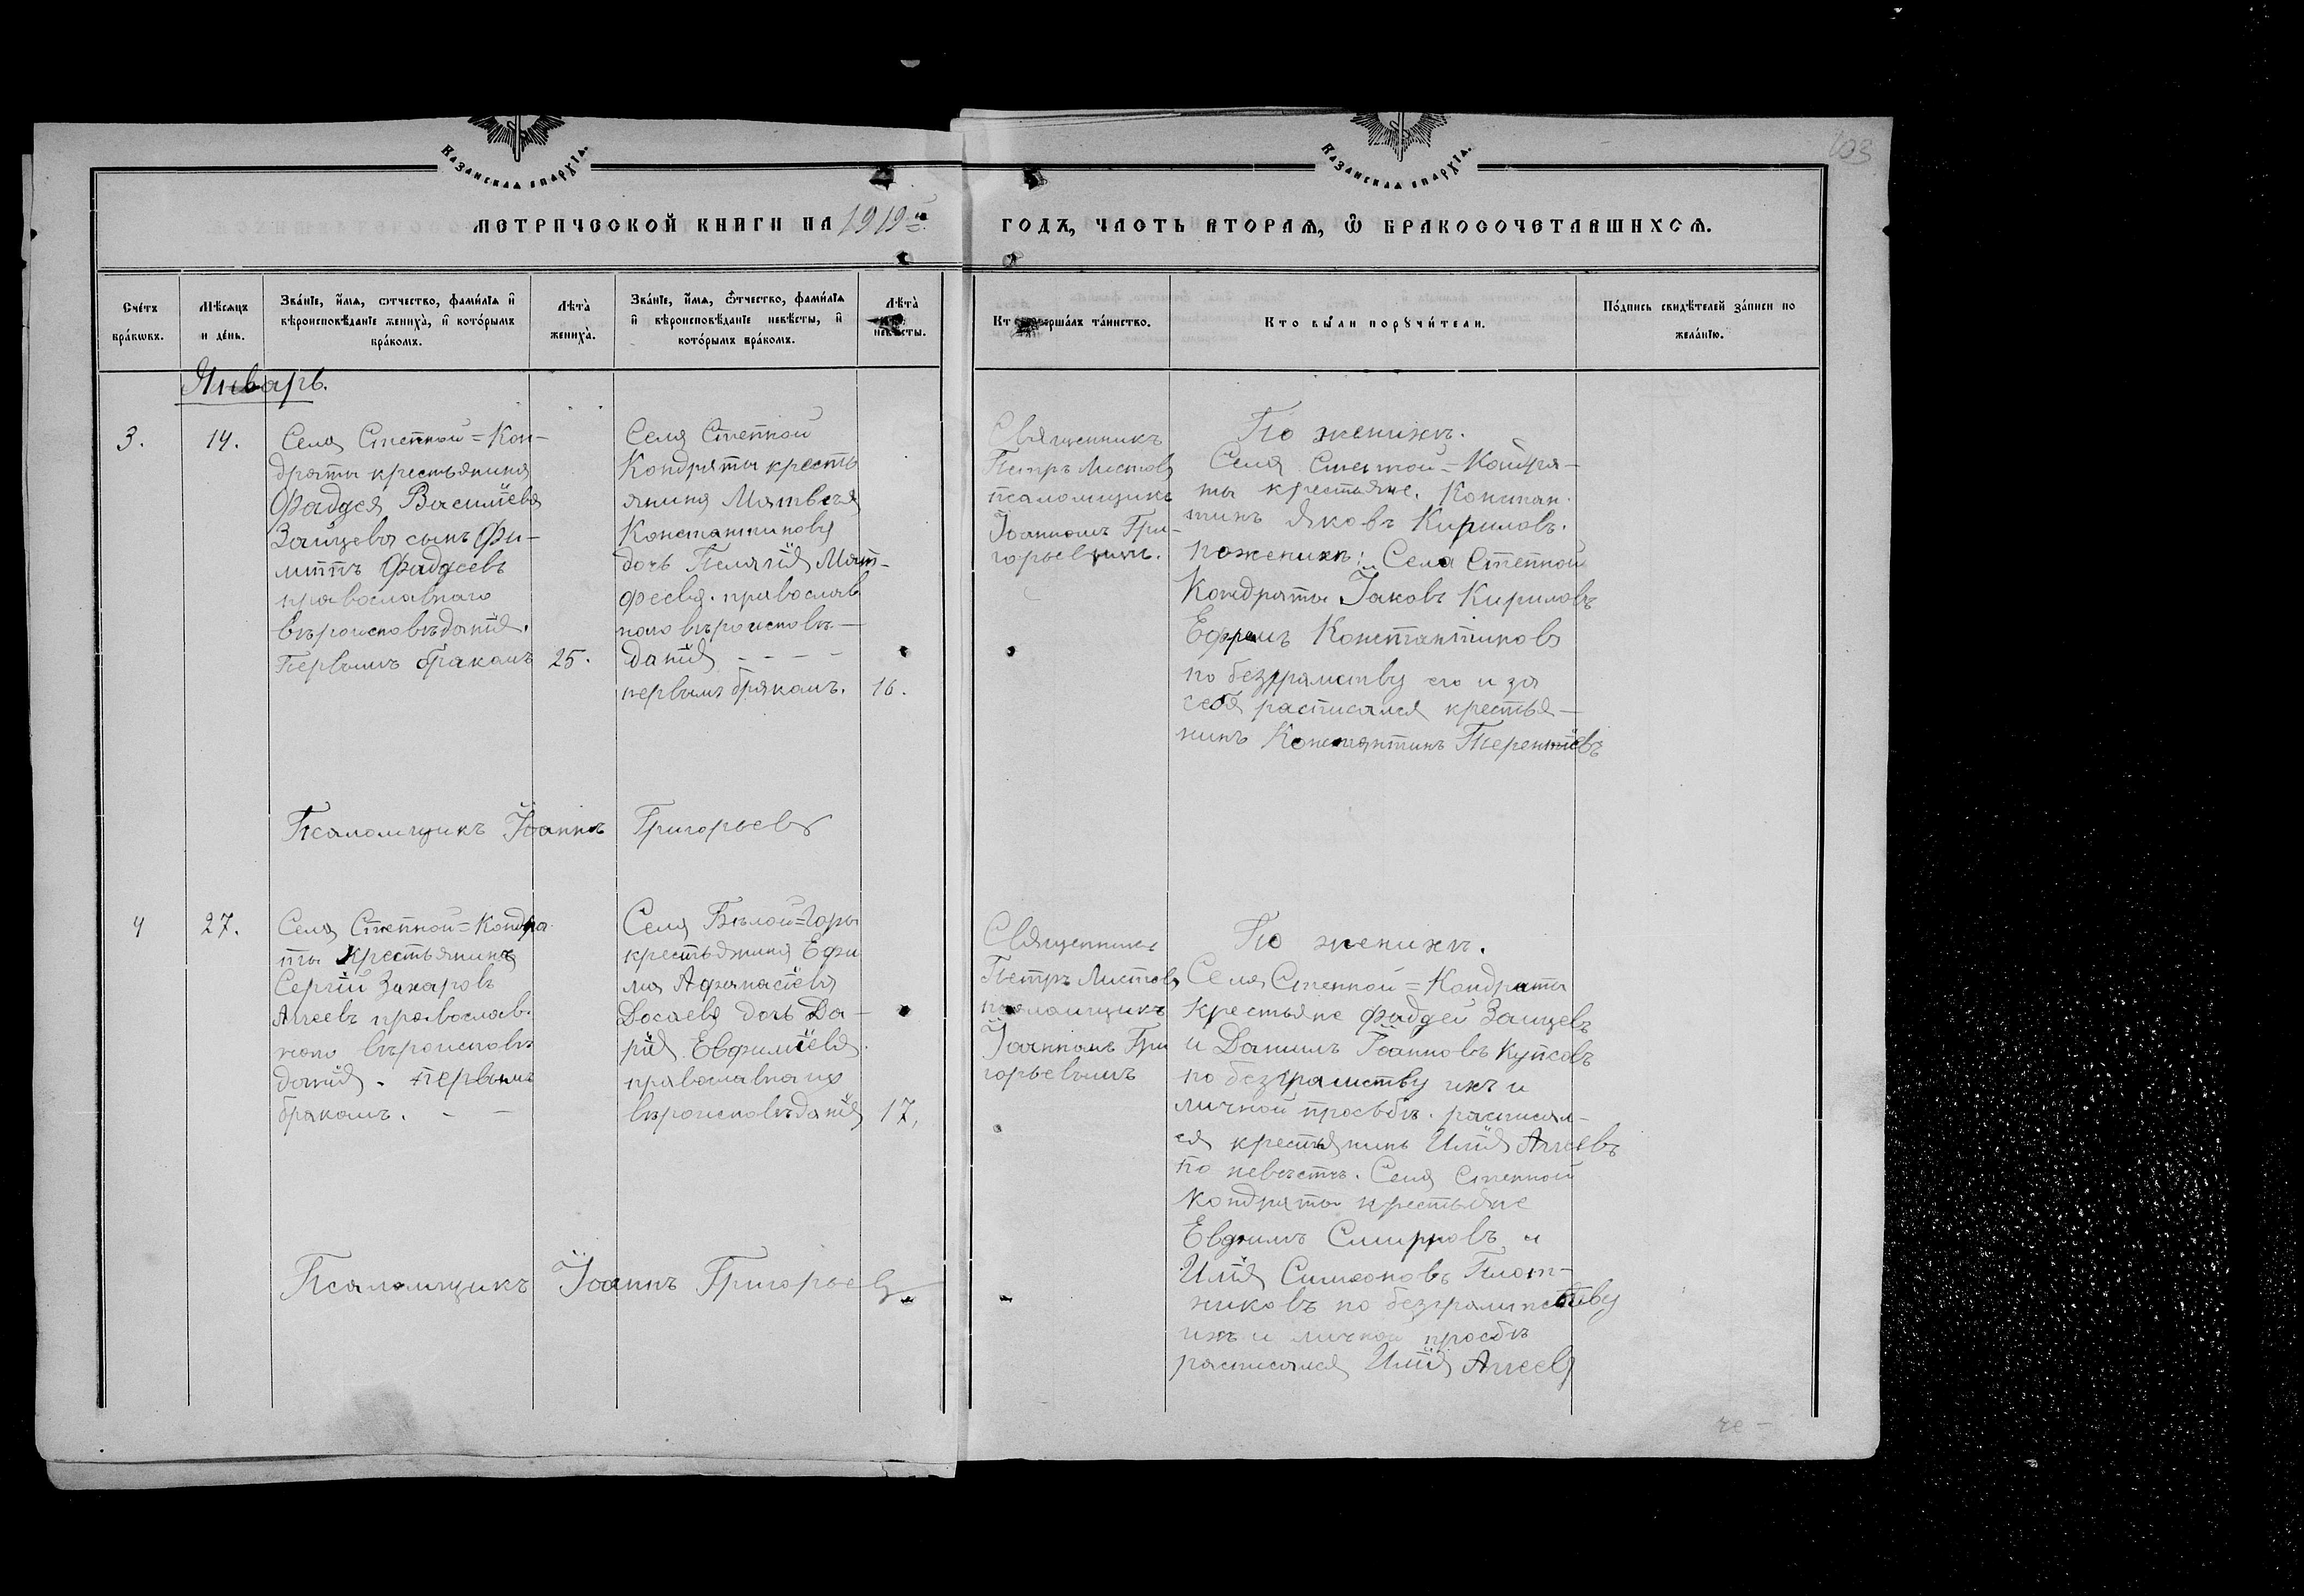 103
Казанская епархїа.
Казанская епархїа.
МЕТРИЧЕСКОЙ КНИГИ НА 1919й
ГОДЪ, ЧАСТЬ ВТОРАѦ, Ѿ БРАКОСОЧЕТАВШИХСѦ.
Счетъ браковъ.
Мѣсяцъ и день.
Званїе, имя, отчество, фамилїя и вѣроисповѣданїе жениха, и которымъ бракомъ.
Лѣта жениха.
Званїе, имя, отчество, фамилїя и вѣроисповѣданїе невѣсты, и которымъ бракомъ.
Лѣта невѣсты.
Кто совершалъ таинство.
Кто были поручители.
Подпись свидѣтелей записи по желанїю.
Январь.
3.
14.
Села Степной=Кон-
драты крестьянина
Фаддея Василїева
Зайцева сынъ Фи-
липпъ Фаддеевъ
православнаго
вѣроисповѣданїя.
Первымъ бракомъ
25.
Села Степной
Кондраты кресть
янина Матвея
Константинова
дочь Пелагїя Мат-
феева. православ
наго вѣроисповѣ-
данїя - - - -
первымъ бракомъ.
16.
Священникъ
Петръ Листовъ
псаломщикъ
Іоанномъ Гри-
горьевымъ.
По женихѣ.
Села Степной=Кондра-
ты крестьяне. Констан-
тинъ Яковъ Кириловъ.
по женихѣ: Села Степной
Кондраты Іаковъ Кириловъ
Ефремъ Константиновъ
по безграмству его и за
себя расписался крестья-
нинъ Константинъ Терентїевъ
Псаломщикъ Іоаннъ Григорьевъ
4
27.
Села Степной=Кондра
ты Крестьянинъ
Сергїй Захаровъ
Агеевъ православ-
наго вѣроисповѣ
данїя. первымъ
бракомъ. - -
Села Бѣлой=Горы
крестьянина Ефи
ма Афанасїева
Досаева дочь Да-
рїя Евфимїева.
православнаго
вѣроисповѣданїя
17.
Священникъ
Петръ Листовъ
псаломщикъ
Іоанномъ Гри
горьевымъ
По женихѣ.
Села Степной=Кондраты
Крестьяне Фаддей Зайцевъ
и Данилъ Іоанновъ Купсовъ
по безграмству ихъ и
личной просьбѣ. расписал-
ся крестьянинъ Илїя Агеевъ
по невѣстѣ. Села Степной
Кондраты крестьяне
Евфимъ Смирновъ и
Илїя Симеоновъ Плот-
никовъ по безгрампству
ихъ и личной просбѣ
расписался Илїя Агеевъ
Псаломщикъ Іоаннъ Григорьевъ